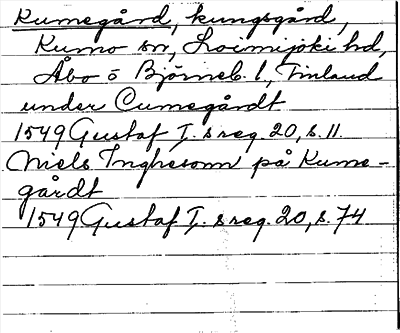 Kumegård, kungsgård,
Kumo sn, Loimijoki hd,
Åbo o Björneb. l, Finland
under Cumegårdt
1549 Gustaf I:s reg. 20, s. 11.
Niels Inghesonn på Kume-
gårdt
1549 Gustaf I:s reg. 20, s. 74